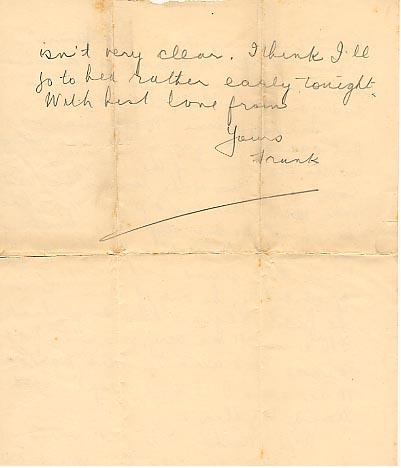 isn't very clear. I think I'll
go to bed rather early tonight.
With best love from
Yours
Frank